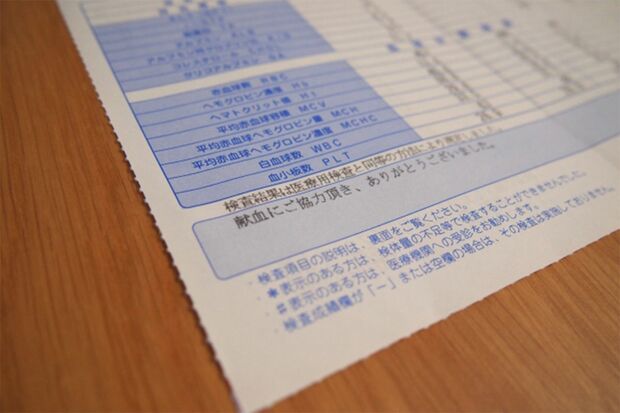 赤血球数 RBC
ヘモグロビン濃度 Hb
ヘマトクリット値 Ht
平均赤血球容積 MCV
平均赤血球ヘモグロビン量 MCH
平均赤血球ヘモグロビン濃度 MCHC
白血球数 WBC
血小板数 PLT
検査結果は医療用検査と同等の方法により測定しました。
献血にご協力頂き、ありがとうございました。
・検査項目の説明は、裏面をご覧ください。
・*表示のある方は、検体量の不足等で検査することができませんでした。
・#表示のある方は、医療機関への受診をお勧めします。
・検査成績欄が「－」または空欄の場合は、その検査は実施しておりません。